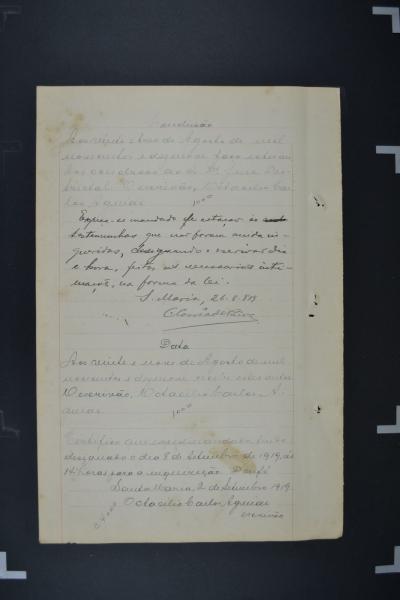 Conclusão
Aos vinte e nove de Agosto de mil
novecentos e desenove faço estes au
tos conclusos ao Dr. Juiz Dis
trictal. O escrivão, Octacilio Car
los Aguiar
1000
Expeça-se mandado de citação às
testemunhas que não foram ainda in-
queridas, designando o escrivão dia
e hora, feitas as necessarias inti-
mações, na forma da lei.
S. Maria, 26-8-919
Data
Aos vinte e nove de Agosto de mil
novecentos e desenove recebi estes autos
O escrivão, Octacilio Carlos A-
guiar
1000
Certifico que expedi mandado tendo
designado o dia 8 de Setembro de 1919, ás
14 horas para a inquirição. Dou fé
Santa Maria, 2 de Setembro 1919.
Octacilio Carlos Aguiar
escrivão